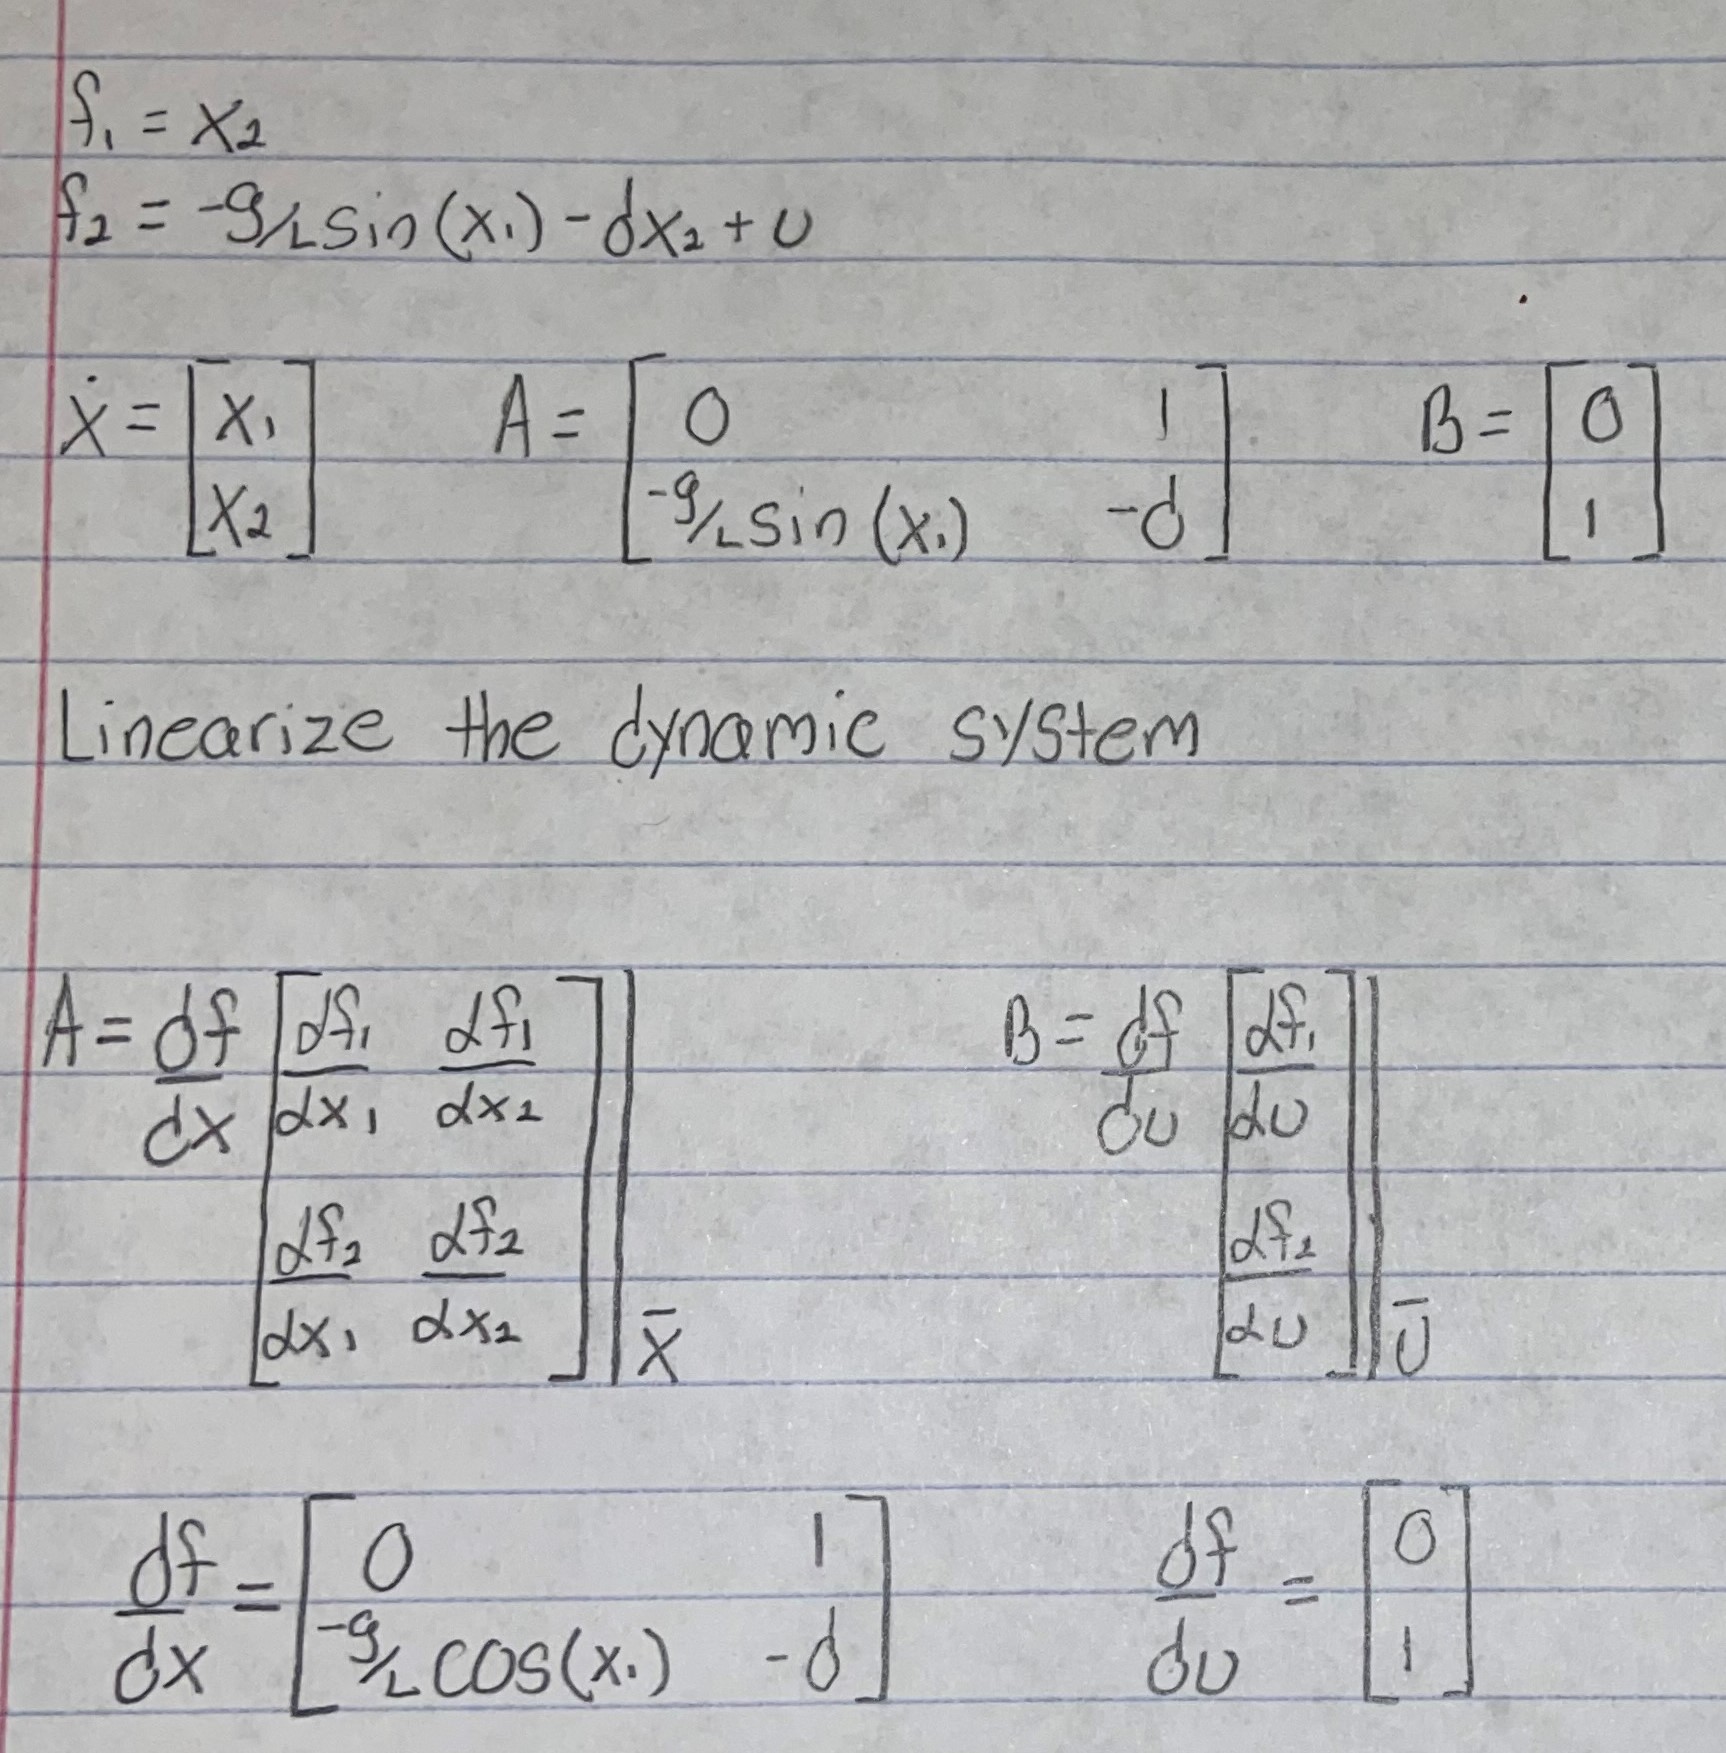 f₁ = x₂
f₂ = -g/L sin(x₁) - dx₂ + u
ẋ = [x₁ ; x₂]   A = [0   1 ; -g/L sin(x₁)   -d]   B = [0 ; 1]
Linearize the dynamic system
A = df/dx [df₁/dx₁   df₁/dx₂ ; df₂/dx₁   df₂/dx₂] | x̄   B = df/du [df₁/du ; df₂/du] | ū
df/dx = [0   1 ; -g/L cos(x₁)   -d]   df/du = [0 ; 1]